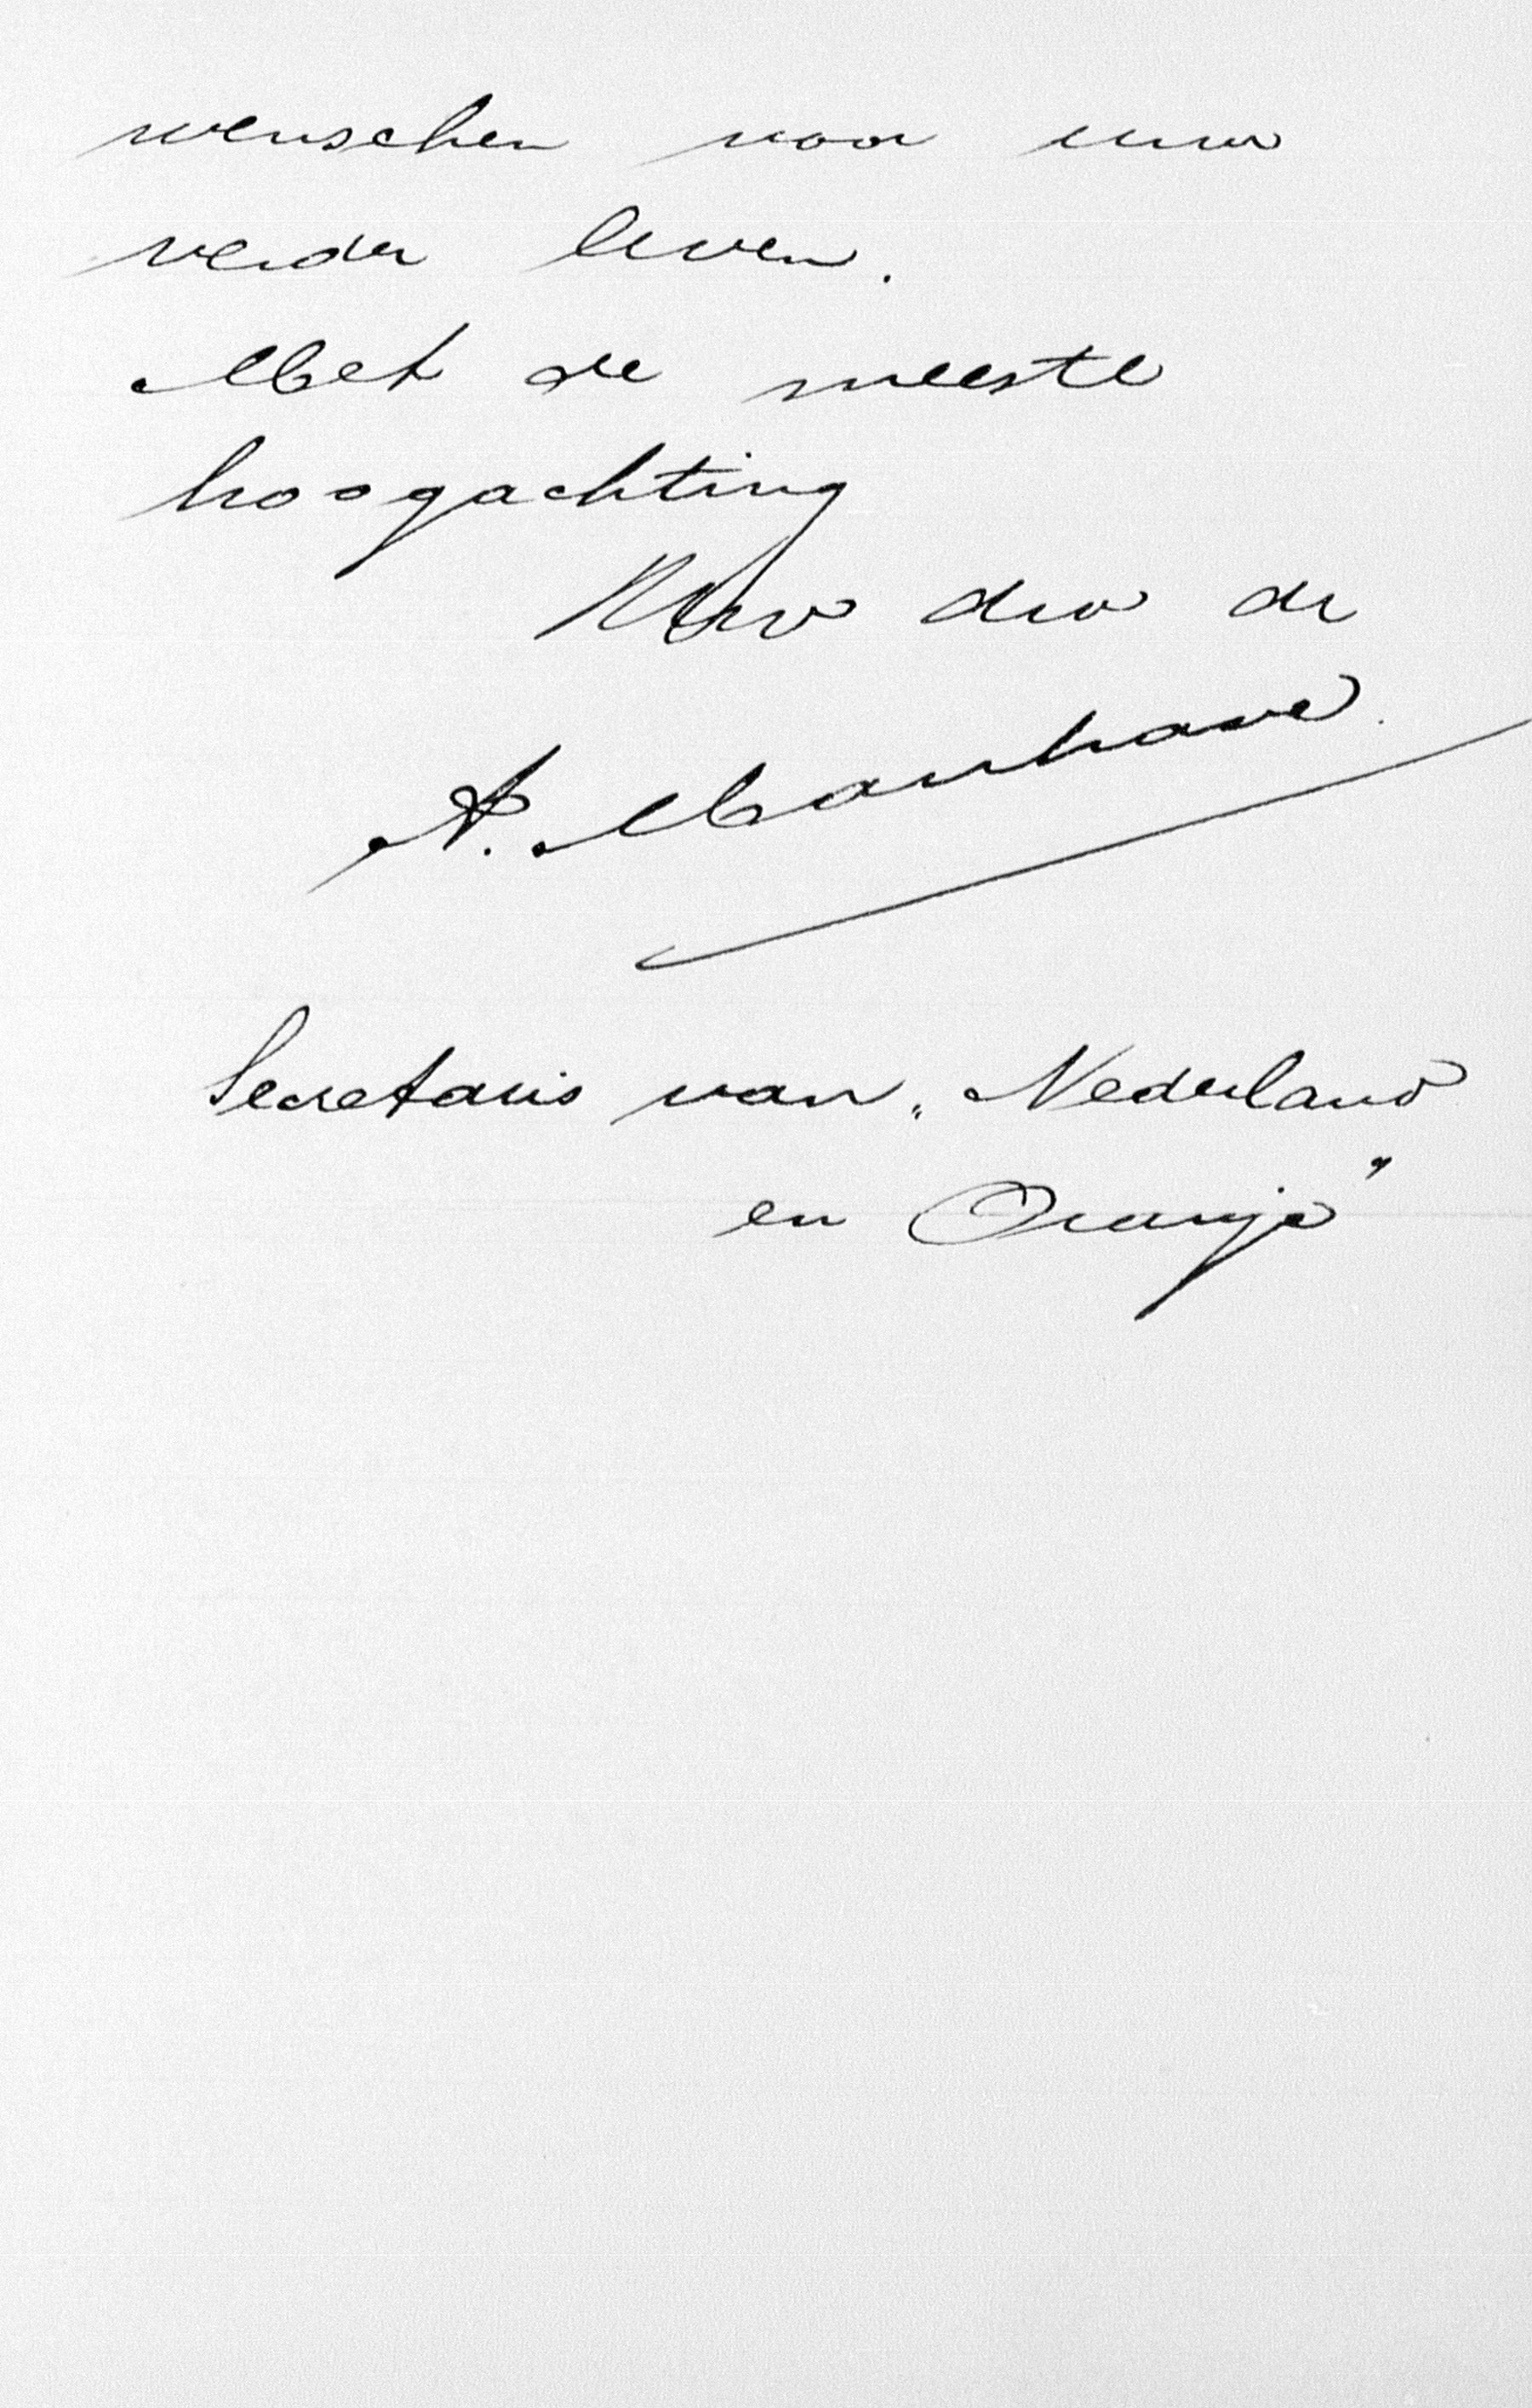 wenschen voor uw
verder leven.
Met de meeste
hoogachting
Uw dw dr
A. Manhave.
Secretaris van „Nederland
en Oranje"